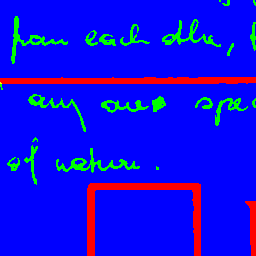 from each other,
any one spe
of nature.